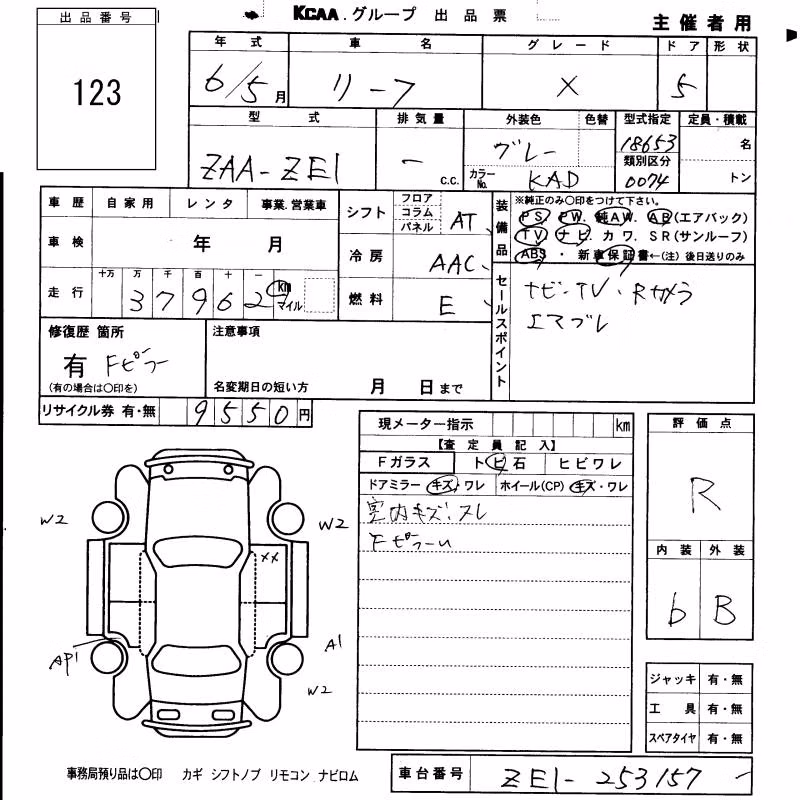 出品番号
123
KCAA.グループ 出品票
主催者用
年式 車名 グレード ドア 形状
6/5月 リーフ X 5
型式 排気量 外装色 色替 型式指定 定員・積載
ZAA-ZE1 - C.C. グレー 18653 名
カラーNo. KAD 類別区分 0074 トン
車歴 自家用 レンタ 事業.営業車
車検 年 月
走行 十万 万 千 百 十 一
37962 km マイル
シフト フロア コラム パネル AT
冷房 AAC
燃料 E
装備品
※純正のみ〇印をつけて下さい。
PS. PW. 純AW. AB(エアバック)
TV. ナビ. カワ. SR(サンルーフ)
ABS ・ 新車保証書←(注) 後日送りのみ
セールスポイント
ナビ・TV・Rカメラ
エマブレ
修復歴 箇所
有 Fピラー
(有の場合は〇印を)
注意事項
名変期日の短い方 月 日まで
リサイクル券 有・無 9550円
現メーター指示 km
【査定員記入】
Fガラス トビ石 ヒビワレ
ドアミラー キズ・ワレ ホイール(CP) キズ・ワレ
室内キズ・スレ
Fピラーu
評価点
R
内装 外装
b B
W2
W2
XX
AP1
A1
W2
ジャッキ 有・無
工具 有・無
スペアタイヤ 有・無
事務局預り品は〇印 カギ シフトノブ リモコン ナビロム
車台番号 ZE1-253157